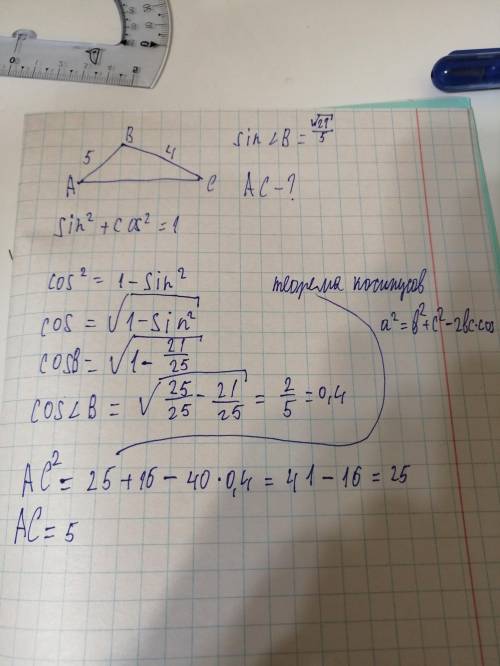 B
5 4
A C
sin∠B = √21/5
AC - ?
sin² + cos² = 1
cos² = 1 - sin²
cos = √(1 - sin²)
cosB = √(1 - 21/25)
cos∠B = √(25/25 - 21/25) = 2/5 = 0,4
теорема косинусов
a² = b² + c² - 2bc·cos
AC² = 25 + 16 - 40·0,4 = 41 - 16 = 25
AC = 5